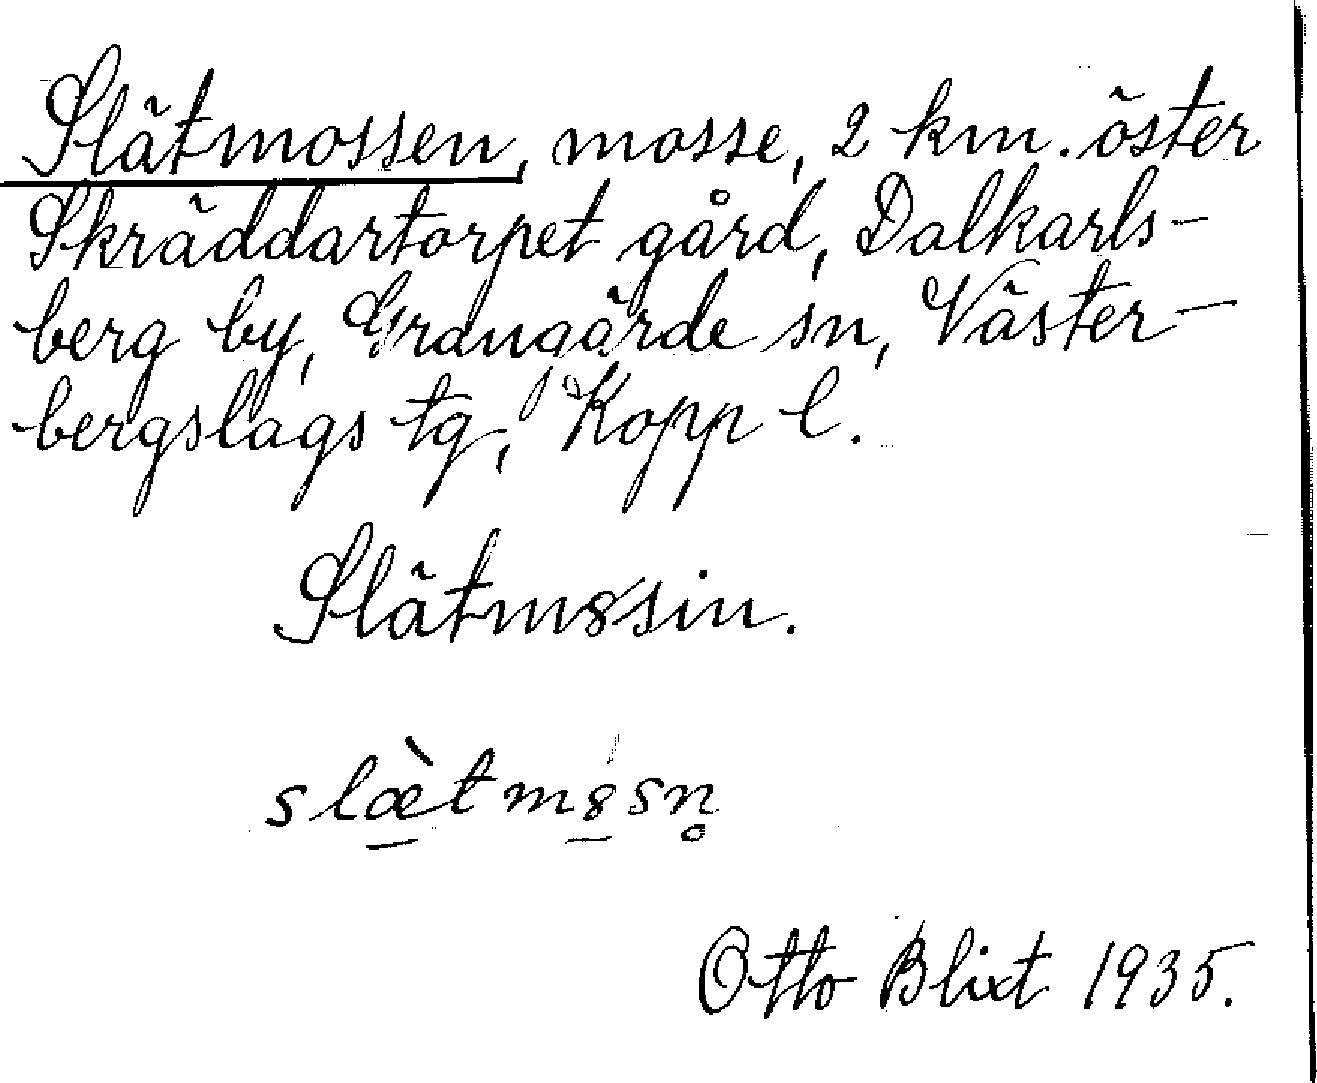 Slätmossen, mosse, 2 km. öster
Skräddartorpet gård, Dalkarls-
berg by, Grangärde sn, Väster-
bergslags tg, Kopp l.
Slätm8sin.
slæ̠̀tm8̠sn̥
Otto Blixt 1935.